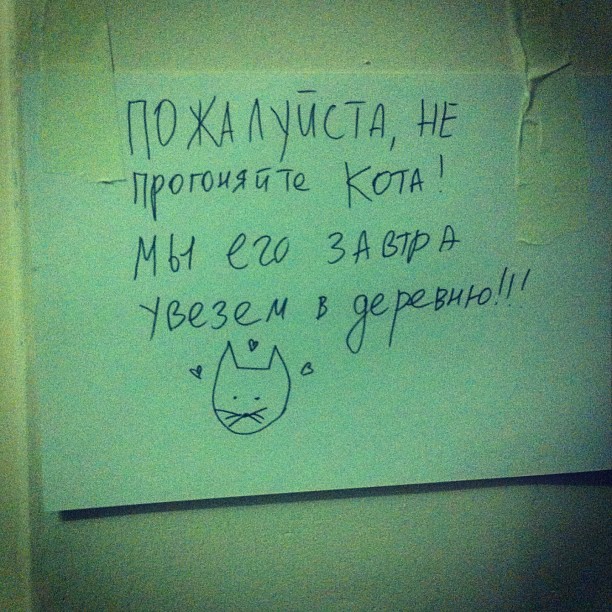 ПОЖАЛУЙСТА, НЕ
прогоняйте КОТА!
МЫ его ЗАВТРА
увезем в деревню!!!